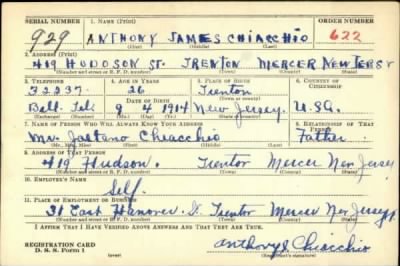 SERIAL NUMBER 1. NAME (Print) ORDER NUMBER
929 ANTHONY JAMES CHIACCHIO 622
(First) (Middle) (Last)
2. ADDRESS (Print)
419 HUDSON ST. TRENTON MERCER NEW JERSY
(Number and street or R. F. D. number) (Town) (County) (State)
3. TELEPHONE 4. AGE IN YEARS 5. PLACE OF BIRTH 6. COUNTRY OF CITIZENSHIP
32237 26 Trenton
DATE OF BIRTH (Town or county)
Bell. Tel. 9 4 1914 New Jersey. U.S.A.
(Exchange) (Number) (Mo.) (Day) (Yr.) (State or country)
7. NAME OF PERSON WHO WILL ALWAYS KNOW YOUR ADDRESS 8. RELATIONSHIP OF THAT PERSON
Mr. Gaetano Chiacchio Father
(Mr., Mrs., Miss) (First) (Middle) (Last)
9. ADDRESS OF THAT PERSON
419 Hudson. Trenton Mercer New Jersey
(Number and street or R. F. D. number) (Town) (County) (State)
10. EMPLOYER'S NAME
Self.
11. PLACE OF EMPLOYMENT OR BUSINESS
31 East Hanover St. Trenton Mercer New Jersey
(Number and street or R. F. D. number) (Town) (County) (State)
I AFFIRM THAT I HAVE VERIFIED ABOVE ANSWERS AND THAT THEY ARE TRUE.
REGISTRATION CARD
D. S. S. Form 1 (over) Anthony J Chiacchio
(Registrant's signature)